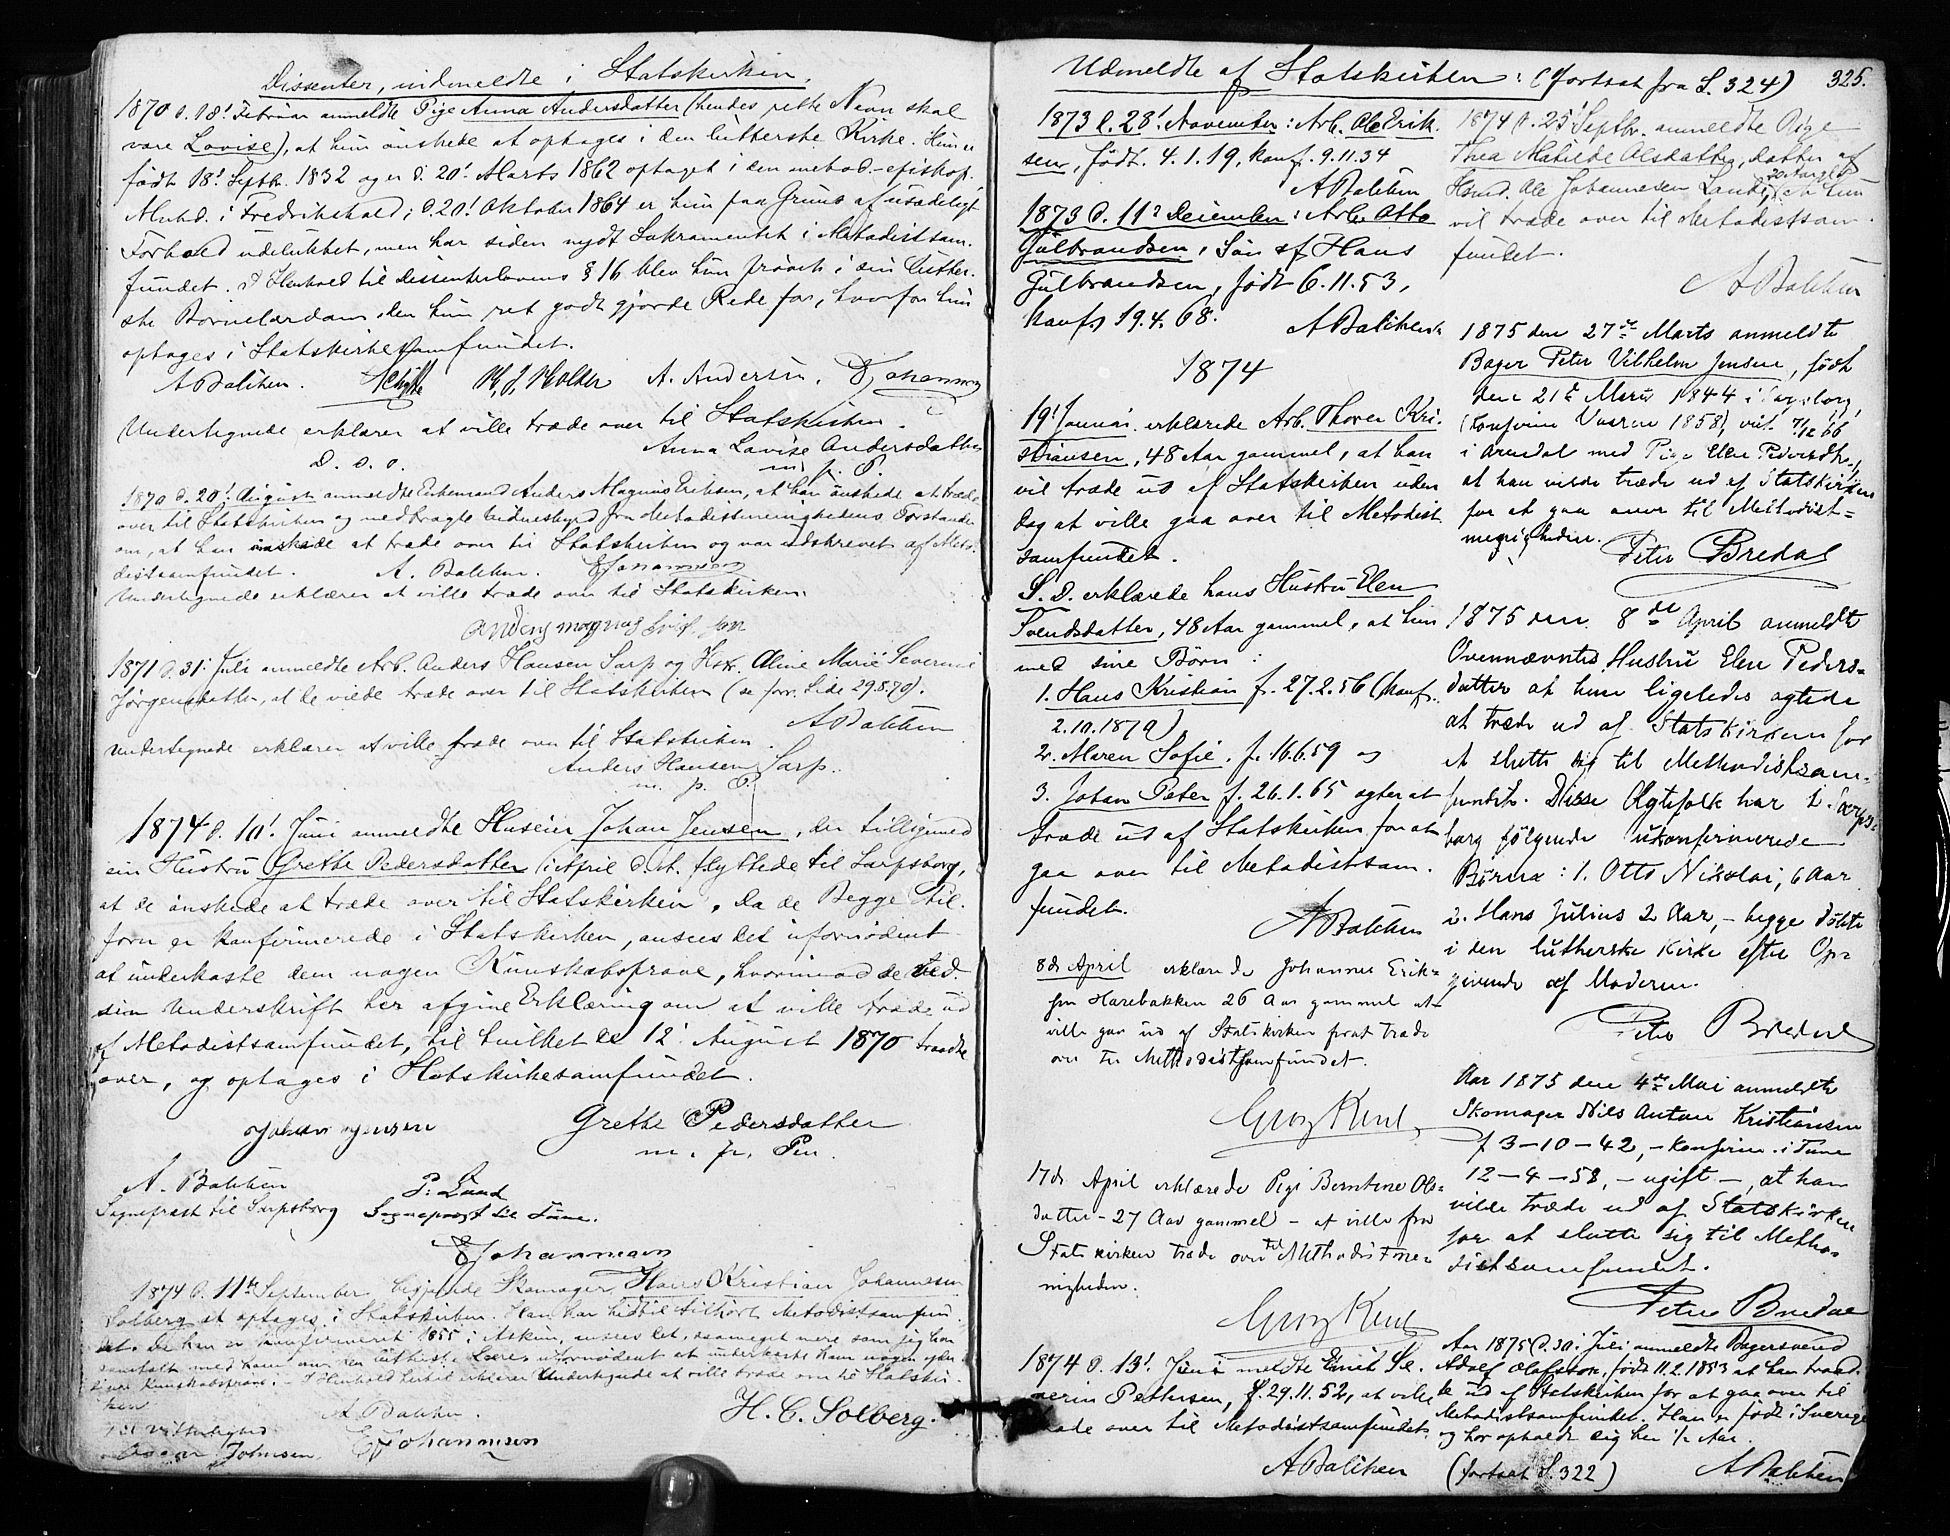 Dissenter, indmeldte i Statskirken.
1870 d. 18! Februar anmeldte Pige Anna Andersdatter (hendes rette Navn skal
være Lovise), at hun ønskede at optages i den lutherske Kirke. Hun er
født 18! Septb. 1832 og er d. 20! Marts 1862 optaget i den metod.-episkop.
i Fredrikshald; d. 20! Oktober 1864 er hun paa Grund af usædeligt
Forhold udelukket, men har siden nydt Sakramentet i Metodistsam-
fundet. I Henhold til Dissenterlovens § 16 blev hun prøvet i den luther-
ske Børnelærdom, den hun ret godt gjorde Rede for, hvorfor hun
optages i Statskirkesamfundet.
A Bakken. H. J. Holder A. Andersen. Johannesen
Undertegnede erklærer at ville træde over til Statskirken.
D. s. o. Anna Lovise Andersdatter
m. p. P.
1870 d. 20! August anmeldte Enkemand Anders Magnus Eriksen, at han ønskede at træde
over til Statskirken og medbragte Vidnesbyrd fra Metodistmenighedens Forstander
om, at han ønskede at træde over til Statskirken og var udskrevet af Meto-
distsamfundet. A. Bakken. E Johannesen
Undertegnede erklærer at ville træde over til Statskirken.
Anders magnus
1871 d. 31! Juli anmeldte Arb. Anders Hansen Sarp og Hstr. Oline Marie Severine
Jørgensdatter, at de vilde træde over til Statskirken (se forr. Side 29.8.70).
A Bakken
Undertegnede erklærer at ville træde over til Statskirken.
Anders Hansen Sarp.
m. p. P.
1874 d. 10! Juni anmeldte Huseier Johan Jensen, der tilligemed
sin Hustru Grethe Pedersdatter i April d. A. flyttede til Sarpsborg,
at de ønskede at træde over til Statskirken. Da de Begge til-
forn er konfirmerede i Statskirken, ansees det ufornødent
at underkaste dem nogen Kundskabsprøve, hvorimod de ved
sin Underskrift her afgive Erklæring om at ville træde ud
af Metodistsamfundet, til hvilket de 12! August 1870 traadte
over, og optages i Statskirkesamfundet.
Johan Jensen Grethe Pedersdatter
m. p. Pen.
A. Bakken P. Lund
Sogneprest til Sarpsborg Sogneprest til Tune.
E Johannesen
1874 d. 11te September begjærede Skomager Hans Kristian Johannesen
Solberg at optages i Statskirken. Han har hidtil tilhørt Metodistsamfun-
det. Da han er konfirmeret 1855 i Askim, ansees det, saameget mere som jeg har
samtalt med ham om den lutherske Lære, ufornødent at underkaste ham nogen yder-
ligere Kundskabsprøve. I Henhold hertil erklærer Undertegnede at ville træde over til Statskir-
ken.
A Bakken. H. C. Solberg.
Til Vitterlighed
Johnsen. E Johannesen
Udmeldte af Statskirken: (fortsat fra S. 324) 325.
1873 d. 28! November: Arb. Ole Erik-
sen, født 4.1.19, konf. 9.11.34
A Bakken
1873 d. 11! December: Arb. Otto
Gulbrandsen, Søn af Hans
Gulbrandsen, født 6.11.53,
konf. 19.4.68.
A Bakken
1874
19! Januar erklærede Arb. Thorer Kri-
stiansen, 48 Aar gammel, at han
vil træde ud af Statskirken uden
dog at ville gaa over til Metodist-
samfundet.
S. D. erklærede hans Hustru Elen
Svendsdatter, 48 Aar gammel, at hun
med sine Børn:
1. Hans Kristian f. 27.2.56 (konf.
2.10.1870)
2. Maren Sofie f. 16.6.59 og
3. Johan Peter f. 26.1.65 agter at
træde ud af Statskirken for at
gaa over til Metodistsam-
fundet.
A Bakken
8de April erklærede Johannes Erik-
sen Harebakken 26 Aar gammel at
ville gaa ud af Statskirken for at træde
over til Methodistsamfundet.
Georg Kent
17de April erklærede Pige Berntine Ols-
datter - 27 Aar gammel - at ville fra
Statskirken træde over til Methodistme-
nigheden.
Georg Kent
1874 d. 13! Juni meldte Emil Se-
verin Pettersen, f. 29.11.52, at ville
træde over til Metodistsamfundet.
A Bakken
1874 d. 25! Septbr. anmeldte Pige
Thea Matilde Olsdatter, Datter af
Husmd. Ole Johannesen Lande, at hun
vil træde over til Metodistsam-
fundet.
A Bakken
1875 den 27de Marts anmeldte
Bager Peter Vilhelm Jensen, født
den 21de Marts 1844 i Sarpsborg,
(Konfirm 1858), viet 7/12 66
i Arendal med Pige Elen Pedersdtr.,
at han vilde træde ud af Statskirken
for at gaa over til Methodist-
menigheden.
Peter Bredal
1875 den 8de April anmeldte
Ovennævntes Hustru Elen Peders-
datter at hun ligeledes agtede
at træde ud af Statskirken for
at slutte sig til Methodistsam-
fundet. Disse Ægtefolk har i Sarps-
borg følgende ukonfirmerede
Børn: 1. Otto Nikolai, 6 Aar
2. Hans Julius 2 Aar, - begge døbte
i den lutherske Kirke efter Op-
givende af Moderen.
Peter Bredal
Aar 1875 den 4de Mai anmeldte
Skomager Nils Anton Kristiansen
f 3-10-42, - konfirm. i Tune
12-4-58, - ugift -, at han
vilde træde ud af Statskirken
for at slutte sig til Metho-
distsamfundet.
Peter Bredal
Aar 1875 d. 30! Juli anmeldte Bagersvend
Adolf Olafsson, født 11.2.1853 at han træd-
te ud af Statskirken for at gaa over til
Metodistsamfundet. Han er født i Sverige
og har opholdt sig her 1/2 Aar.
(fortsat S. 322) A Bakken